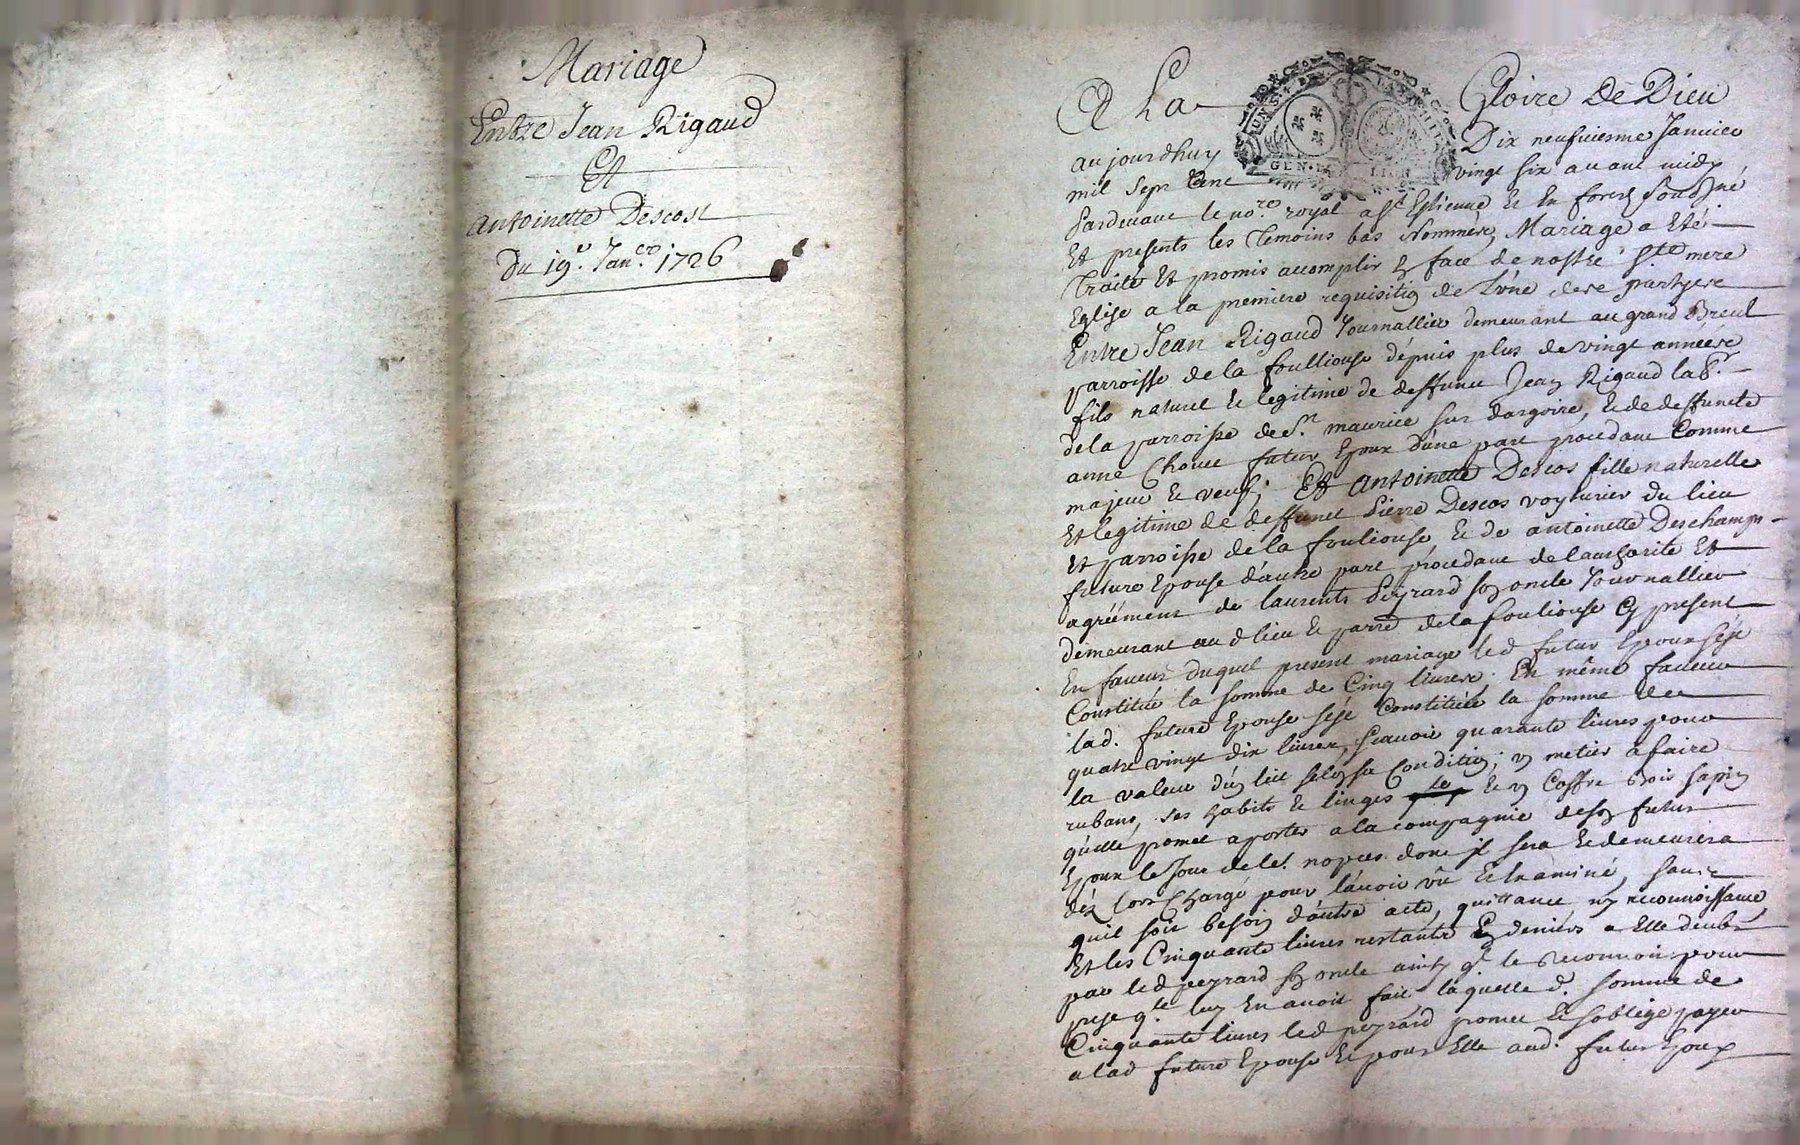 Mariage
Entre Jean Rigaud
Et
Antoinette Descost
Du 19e. Jan.er 1726
A La Gloire De Dieu
UNS
GEN. LION
aujourdhuy Dix neufuieme Januier
mil Sept Cent vingt six auant midy
Pardeuant le no.re royal a St Estienne Et En forest Soussigné
Et presents les Temoins bas Nommere, Mariage a Eté
Traité Et promis accomplir En face de nostre Ste mere
Eglise a la premiere requisition de L'une desd partyere
Entre Jean Rigaud Journallier demeurant au grand Breul
parroisse de la foulliouse dépuis plus de vingt annéere
fils naturel & legitime de deffunct Jean Rigaud lab.r
de la parroisse de St maurice sur dargoire, & de deffuncte
anne futur Epoux d'une part procedant Comme
majeur & veuf; Et Antoinette Descos fille naturelle
Et legitime de deffunct Pierre Descos voyturier du lieu
Et parroisse de la fouliouse & de antoinette Deschamps
future Epouse d'autre part procedant de l'authorité Et
agréément de laurents Peyrard son oncle Journallier
demeurant aud lieu & parre de la fouliouse Cy present
En faueur duquel present mariage led futur Epoux sest
Constitué la somme de Cinq liurere. En même faueur
lad. future Epouse sést Constituée la somme de
quatre vingt dix liures, scauoir quarante liures pour
la valeur d'un lit selon sa Condition; un metier a faire
rubans, ses habits & linges & un Coffre bois sapin
qu'elle promet aporter a la compagnie de son futur
Epoux le Jour de les nopces dont il sera & demeurera
déz lors Chargé pour l'auoir vû & Examiné, sans
quil soit besoin d'autre acte, quittance ny reconnoissance,
Et les Cinquante liures restante En deniers a Elle deube
par led peyrard son oncle ainsy qe. le reconnoit pour
luy En auoit fait laquelle d. somme de
Cinquante liures led peyrard promet & soblige payer
a lad future Epouse & pour Elle aud. futur Epoux